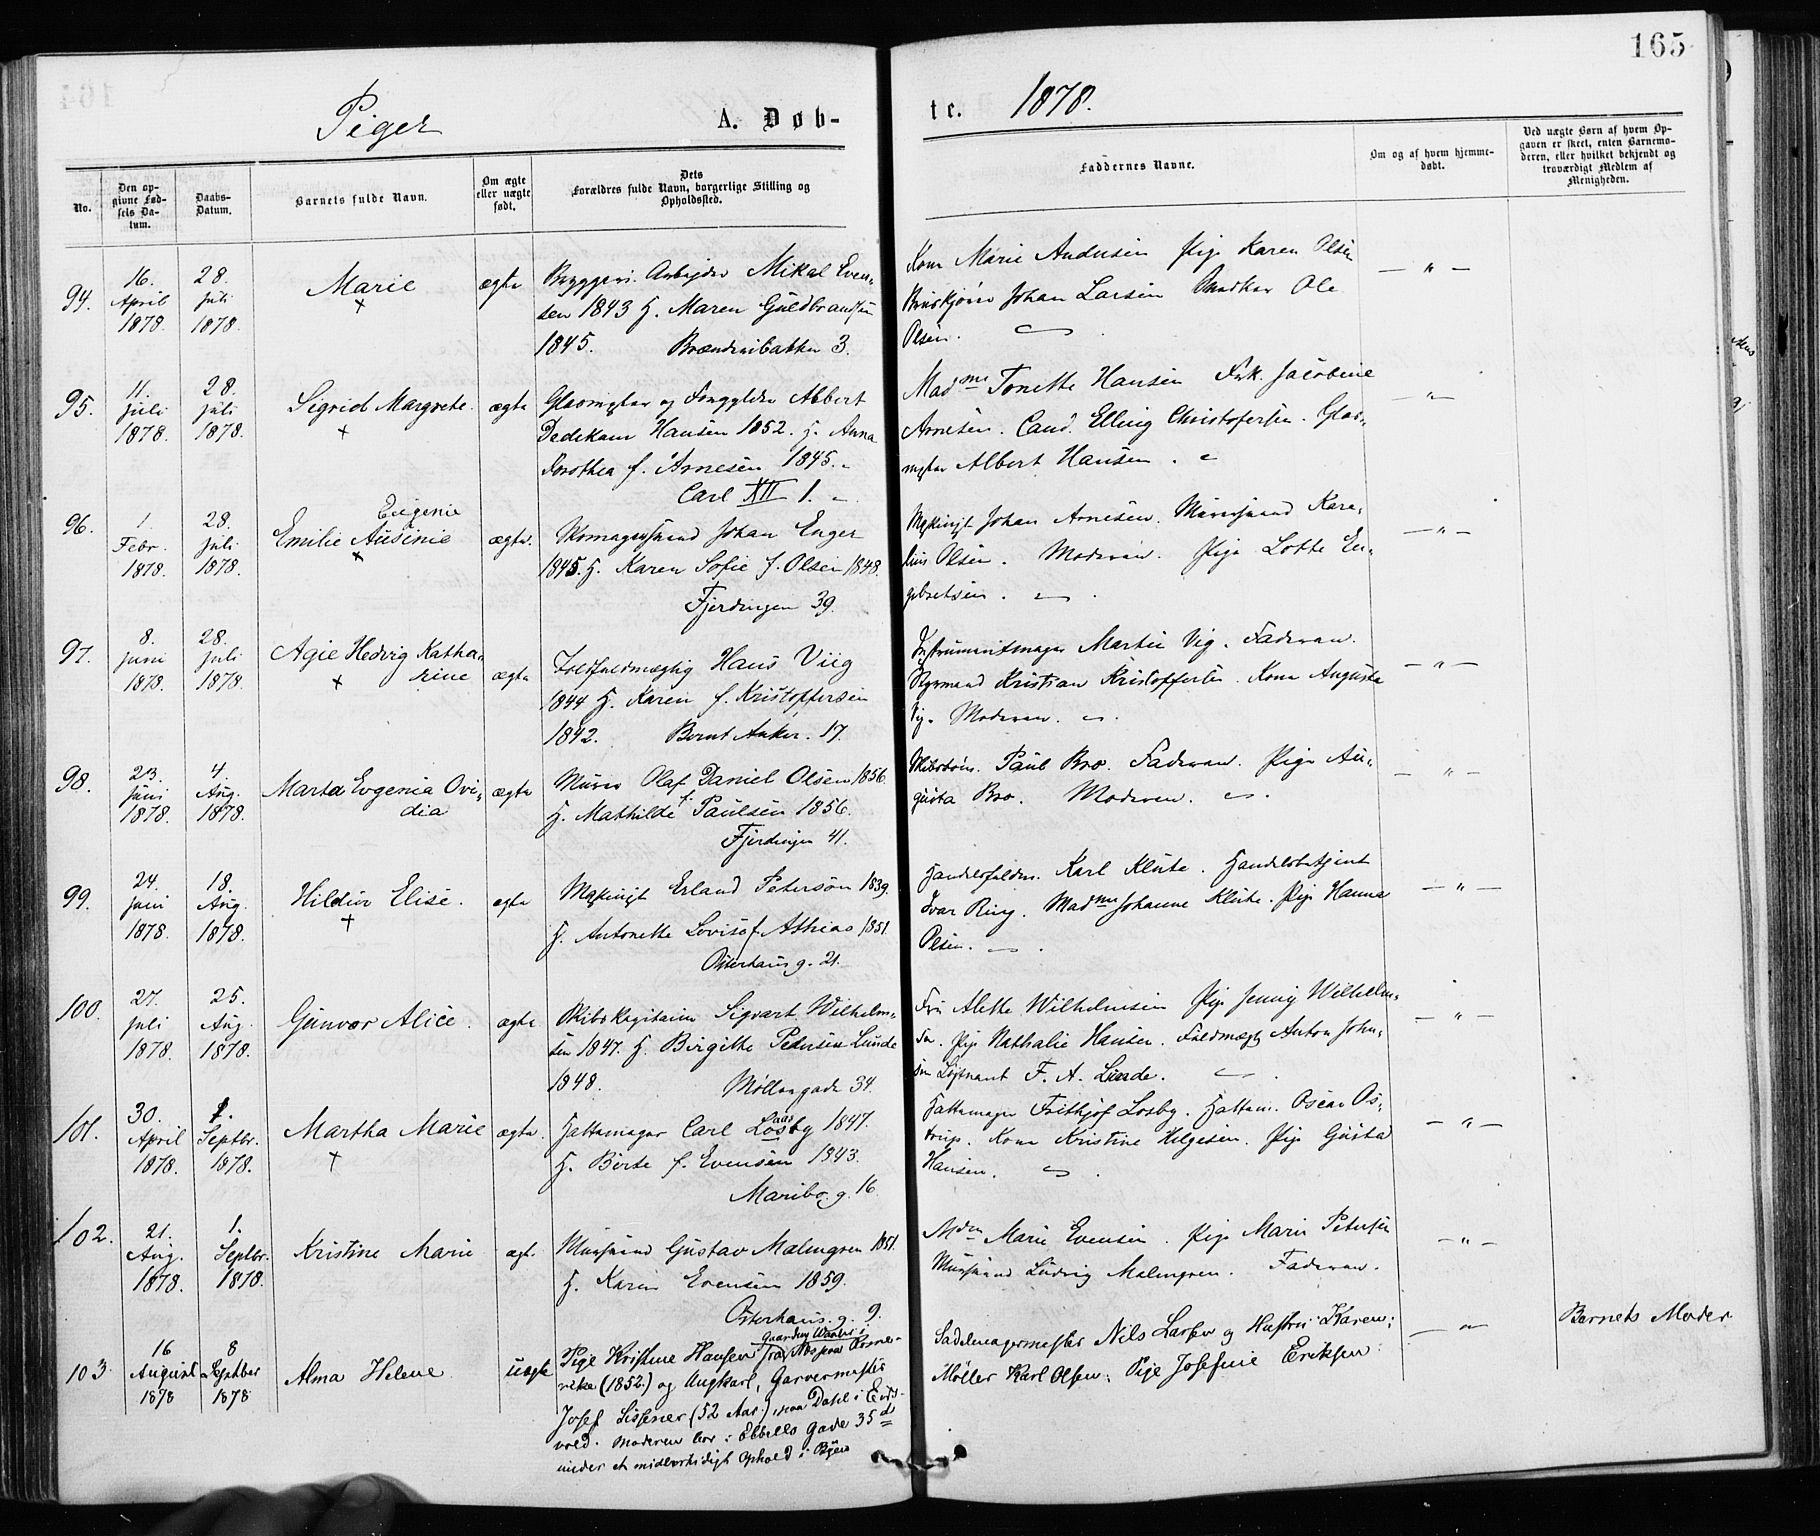 165
Piger
A. Døb-
te.
1878.
No.
Den op-
givne Fød-
sels Da-
tum.
Daabs-
Datum.
Barnets fulde Navn.
Om ægte
eller uægte
født.
Dets
Forældres fulde Navn, borgerlige Stilling og
Opholdssted.
Faddernes Navne.
Om og af hvem hjemme-
døbt.
Ved uægte Børn af hvem Op-
gaven er skeet, enten Barnemo-
deren, eller hvilket bekjendt og
troværdigt Medlem af
Menigheden.
94.
16. April 1878.
28. Juli 1878.
Marie
×
ægte
Bryggeri Arbeider Mikal Even-
sen 1843 H. Maren Guldbrandsen
1845. Brænderibakken 3.
Kone Marie Andersen Pige Karen Olsen
Bruskjører Johan Larsen Snedker Ole
Olsen.
— " —
95.
11. Juli 1878.
28. Juli 1878.
Sigrid Margrete.
×
ægte
Glasmester og Forgylder Albert
Dedekam Hansen 1852. H. Anna
Dorothea f. Arnesen 1845.
Carl XII 1.
Madme Tonette Hansen Frk. Jacobine
Arnesen. Cand. Elling Christofersen. Glas-
mester Albert Hansen.
— " —
96.
1. Febr. 1878.
28. Juli 1878.
Eugenie
Emilie Ausinie
×
ægte.
Skomagersvend Johan Enger
1845. H. Karen Sofie f. Olsen 1848.
Fjerdingen 39.
Maskinist Johan Arnesen. Murersvend Kare-
lius Olsen. Moderen. Pige Lotte En-
gebretsen.
— " —
97.
8. Juni 1878.
28. Juli 1878.
Agie Hedvig Katha-
rine
×
ægte
Toldfuldmægtig Hans Viig
1844 H. Karen f. Kristoffersen
1842. Bernt Anker. 17.
Instrumentmager Martin Vig. Faderen.
Styrmand Kristian Kristoffersen. Kone Augusta
Vig. Moderen.
— " —
98.
23. Juni 1878.
4. Aug. 1878.
Marta Evgenia Ovi-
dia
ægte
Murer Olaf Daniel Olsen 1856.
H. Mathilde f. Paulsen 1856.
Fjerdingen 41.
Paul Bro. Faderen. Pige Au-
gusta Bro. Moderen.
— " —
99.
24. Juni 1878.
18. Aug. 1878.
Hildur Elise.
†
ægte
Maskinist Erland Peterson 1839.
H. Antonette Lovise f. Athias 1851.
Osterhaus g. 21.
Handelsfuldm. Karl Klute. Handelsbetjent
Ivar Ring. Madme Johanne Klute. Pige Hanna
Olsen.
— " —
100.
27. Juli 1878.
25. Aug. 1878.
Gunvor Alice.
ægte
Skibskaptain Sigvart Wilhelm-
sen 1847. H. Birgitte Petersen Lunde
1848. Møllergade 34.
Fru Alette Wilhelmsen Pige Jenny Wilhelm-
sen. Pige Nathalie Hansen. Fuldmægt Anton John-
sen Løjtnant F. A. Linde.
— " —
101.
30. April 1878.
1. Septbr. 1878.
Martha Marie
†
ægte.
Hattemager Carl Losby 1847.
H. Berte f. Evensen 1843.
Maribo. g. 16.
Hattemager Frithjof Losby. Hattem. Oscar Os-
trup. Kone Kristine Helgesen. Pige Gusta
Hansen.
— " —
102.
21. Aug. 1878.
1. Septbr. 1878.
Kristine Marie
ægt.
Mursvend Gustav Malmgren 1851.
H. Karen Evensen 1859.
Osterhaus. g. 9.
Mdm Marie Evensen. Pige Marie Petersen
Mursvend Ludvig Malmgren. Faderen.
— " —
103.
16 August 1878
8 September 1878
Alma Helene
uægte
Pige Kristine Hansen fra
(1852.) og Ungkarl, Garvermester
Josef Lissener (52 Aar.) paa Dahl i Eids-
vold. Moderen bor i Ebbells Gade 35 d
under et midlertidigt Ophold i Byen
Sadelmagermester Nils Larsen og Hustru Karen;
Møller Karl Olsen; Pige Josefine Eriksen.
— " —
Barnets Moder